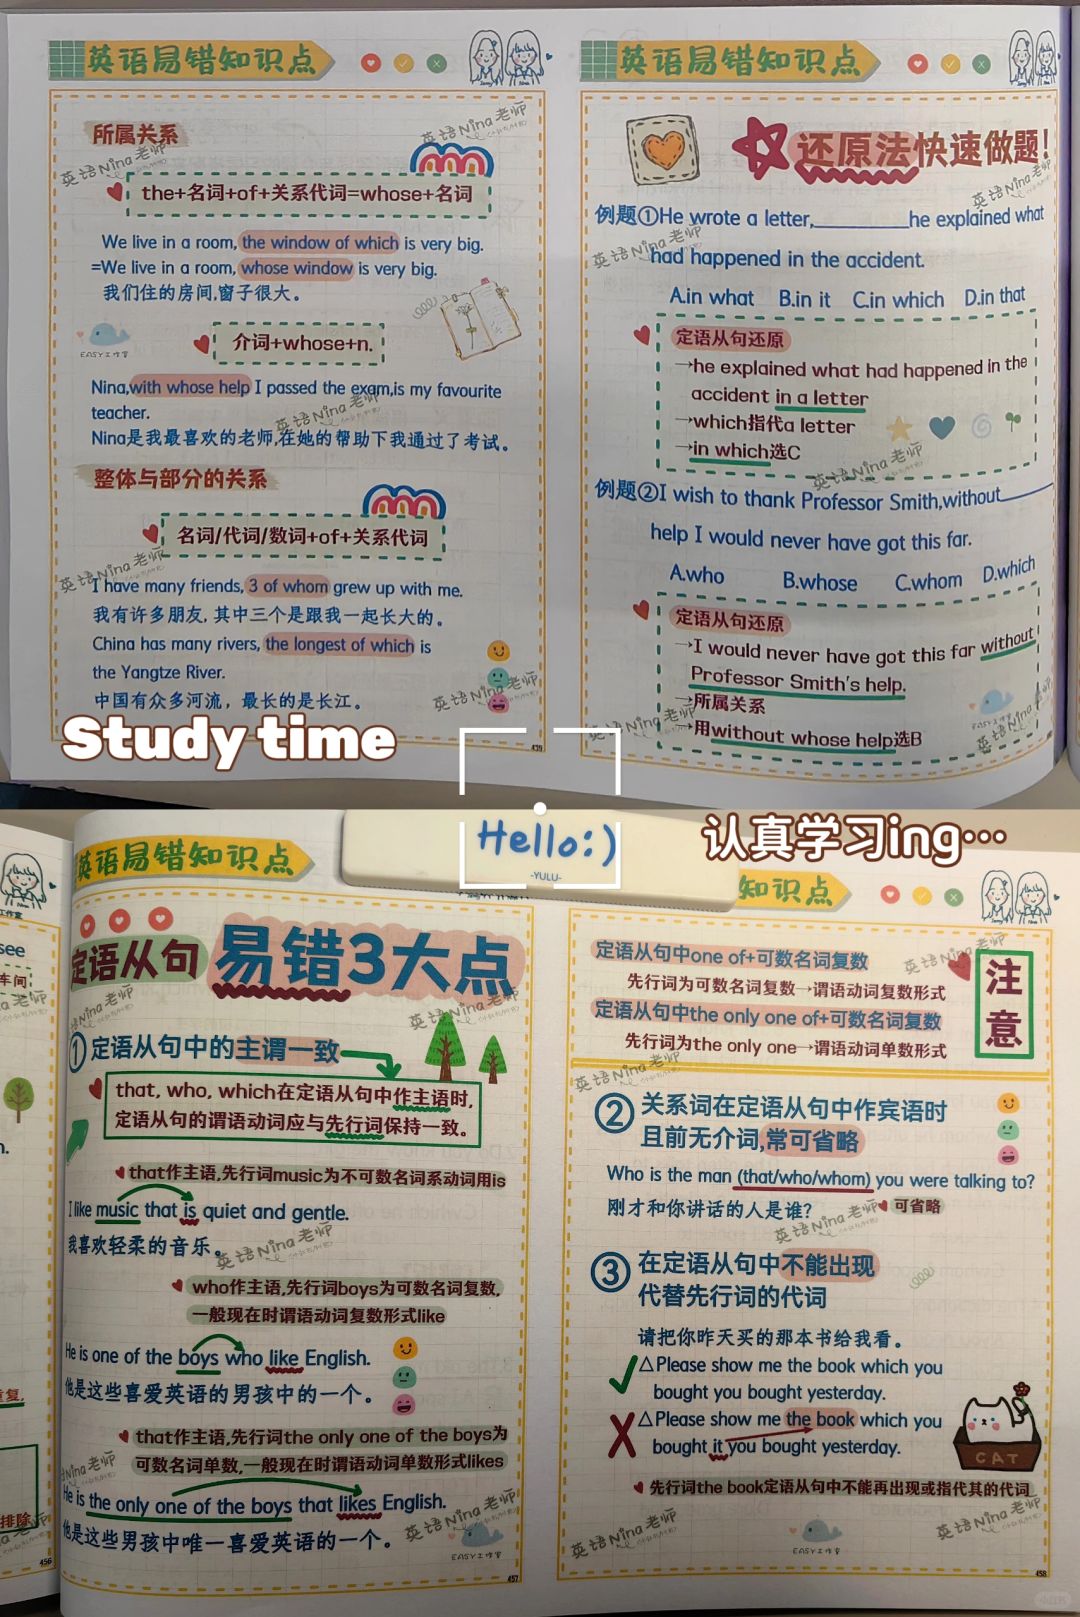 英语易错知识点
所属关系
英语Nina老师
英语Nina老师
the+名词+of+关系代词=whose+名词
We live in a room, the window of which is very big.
=We live in a room, whose window is very big.
我们住的房间,窗子很大。
介词+whose+n.
EASY工作室
Nina,with whose help I passed the exam,is my favourite
teacher.
英语Nina老师
Nina是我最喜欢的老师,在她的帮助下我通过了考试。
整体与部分的关系
名词/代词/数词+of+关系代词
英语Nina老师
I have many friends, 3 of whom grew up with me.
我有许多朋友, 其中三个是跟我一起长大的。
China has many rivers, the longest of which is
the Yangtze River.
中国有众多河流，最长的是长江。
英语Nina老师
Study time
英语易错知识点
还原法快速做题!
英语Nina老师
例题①He wrote a letter,__________he explained what
英语Nina老师
had happened in the accident.
A.in what B.in it C.in which D.in that
定语从句还原
→he explained what had happened in the
accident in a letter
→which指代a letter
→in which选C
英语Nina老师
例题②I wish to thank Professor Smith,without______
help I would never have got this far.
A.who B.whose C.whom D.which
定语从句还原
→I would never have got this far without
Professor Smith's help.
→所属关系
→用without whose help选B
英语Nina老师
EASY工作室
英语Nina老师
Hello:)
-YULU-
认真学习ing…
工作室
see
车间
n.
排除
456
英语易错知识点
定语从句 易错3大点
英语Nina老师
①定语从句中的主谓一致
that, who, which在定语从句中作主语时,
定语从句的谓语动词应与先行词保持一致。
that作主语,先行词music为不可数名词系动词用is
I like music that is quiet and gentle.
我喜欢轻柔的音乐。
英语Nina老师
who作主语,先行词boys为可数名词复数,
一般现在时谓语动词复数形式like
He is one of the boys who like English.
他是这些喜爱英语的男孩中的一个。
that作主语,先行词the only one of the boys为
可数名词单数,一般现在时谓语动词单数形式likes
He is the only one of the boys that likes English.
他是这些男孩中唯一喜爱英语的一个。
英语Nina老师
EASY工作室
457
知识点
定语从句中one of+可数名词复数
先行词为可数名词复数→谓语动词复数形式
定语从句中the only one of+可数名词复数
先行词为the only one→谓语动词单数形式
注意
英语Nina老师
英语Nina老师
②关系词在定语从句中作宾语时
且前无介词,常可省略
Who is the man (that/who/whom) you were talking to?
刚才和你讲话的人是谁?
可省略
英语Nina老师
③在定语从句中不能出现
代替先行词的代词
请把你昨天买的那本书给我看。
△Please show me the book which you
bought you bought yesterday.
△Please show me the book which you
bought it you bought yesterday.
CAT
先行词the book定语从句中不能再出现或指代其的代词
英语Nina老师
EASY工作室
英语Nina老师
458